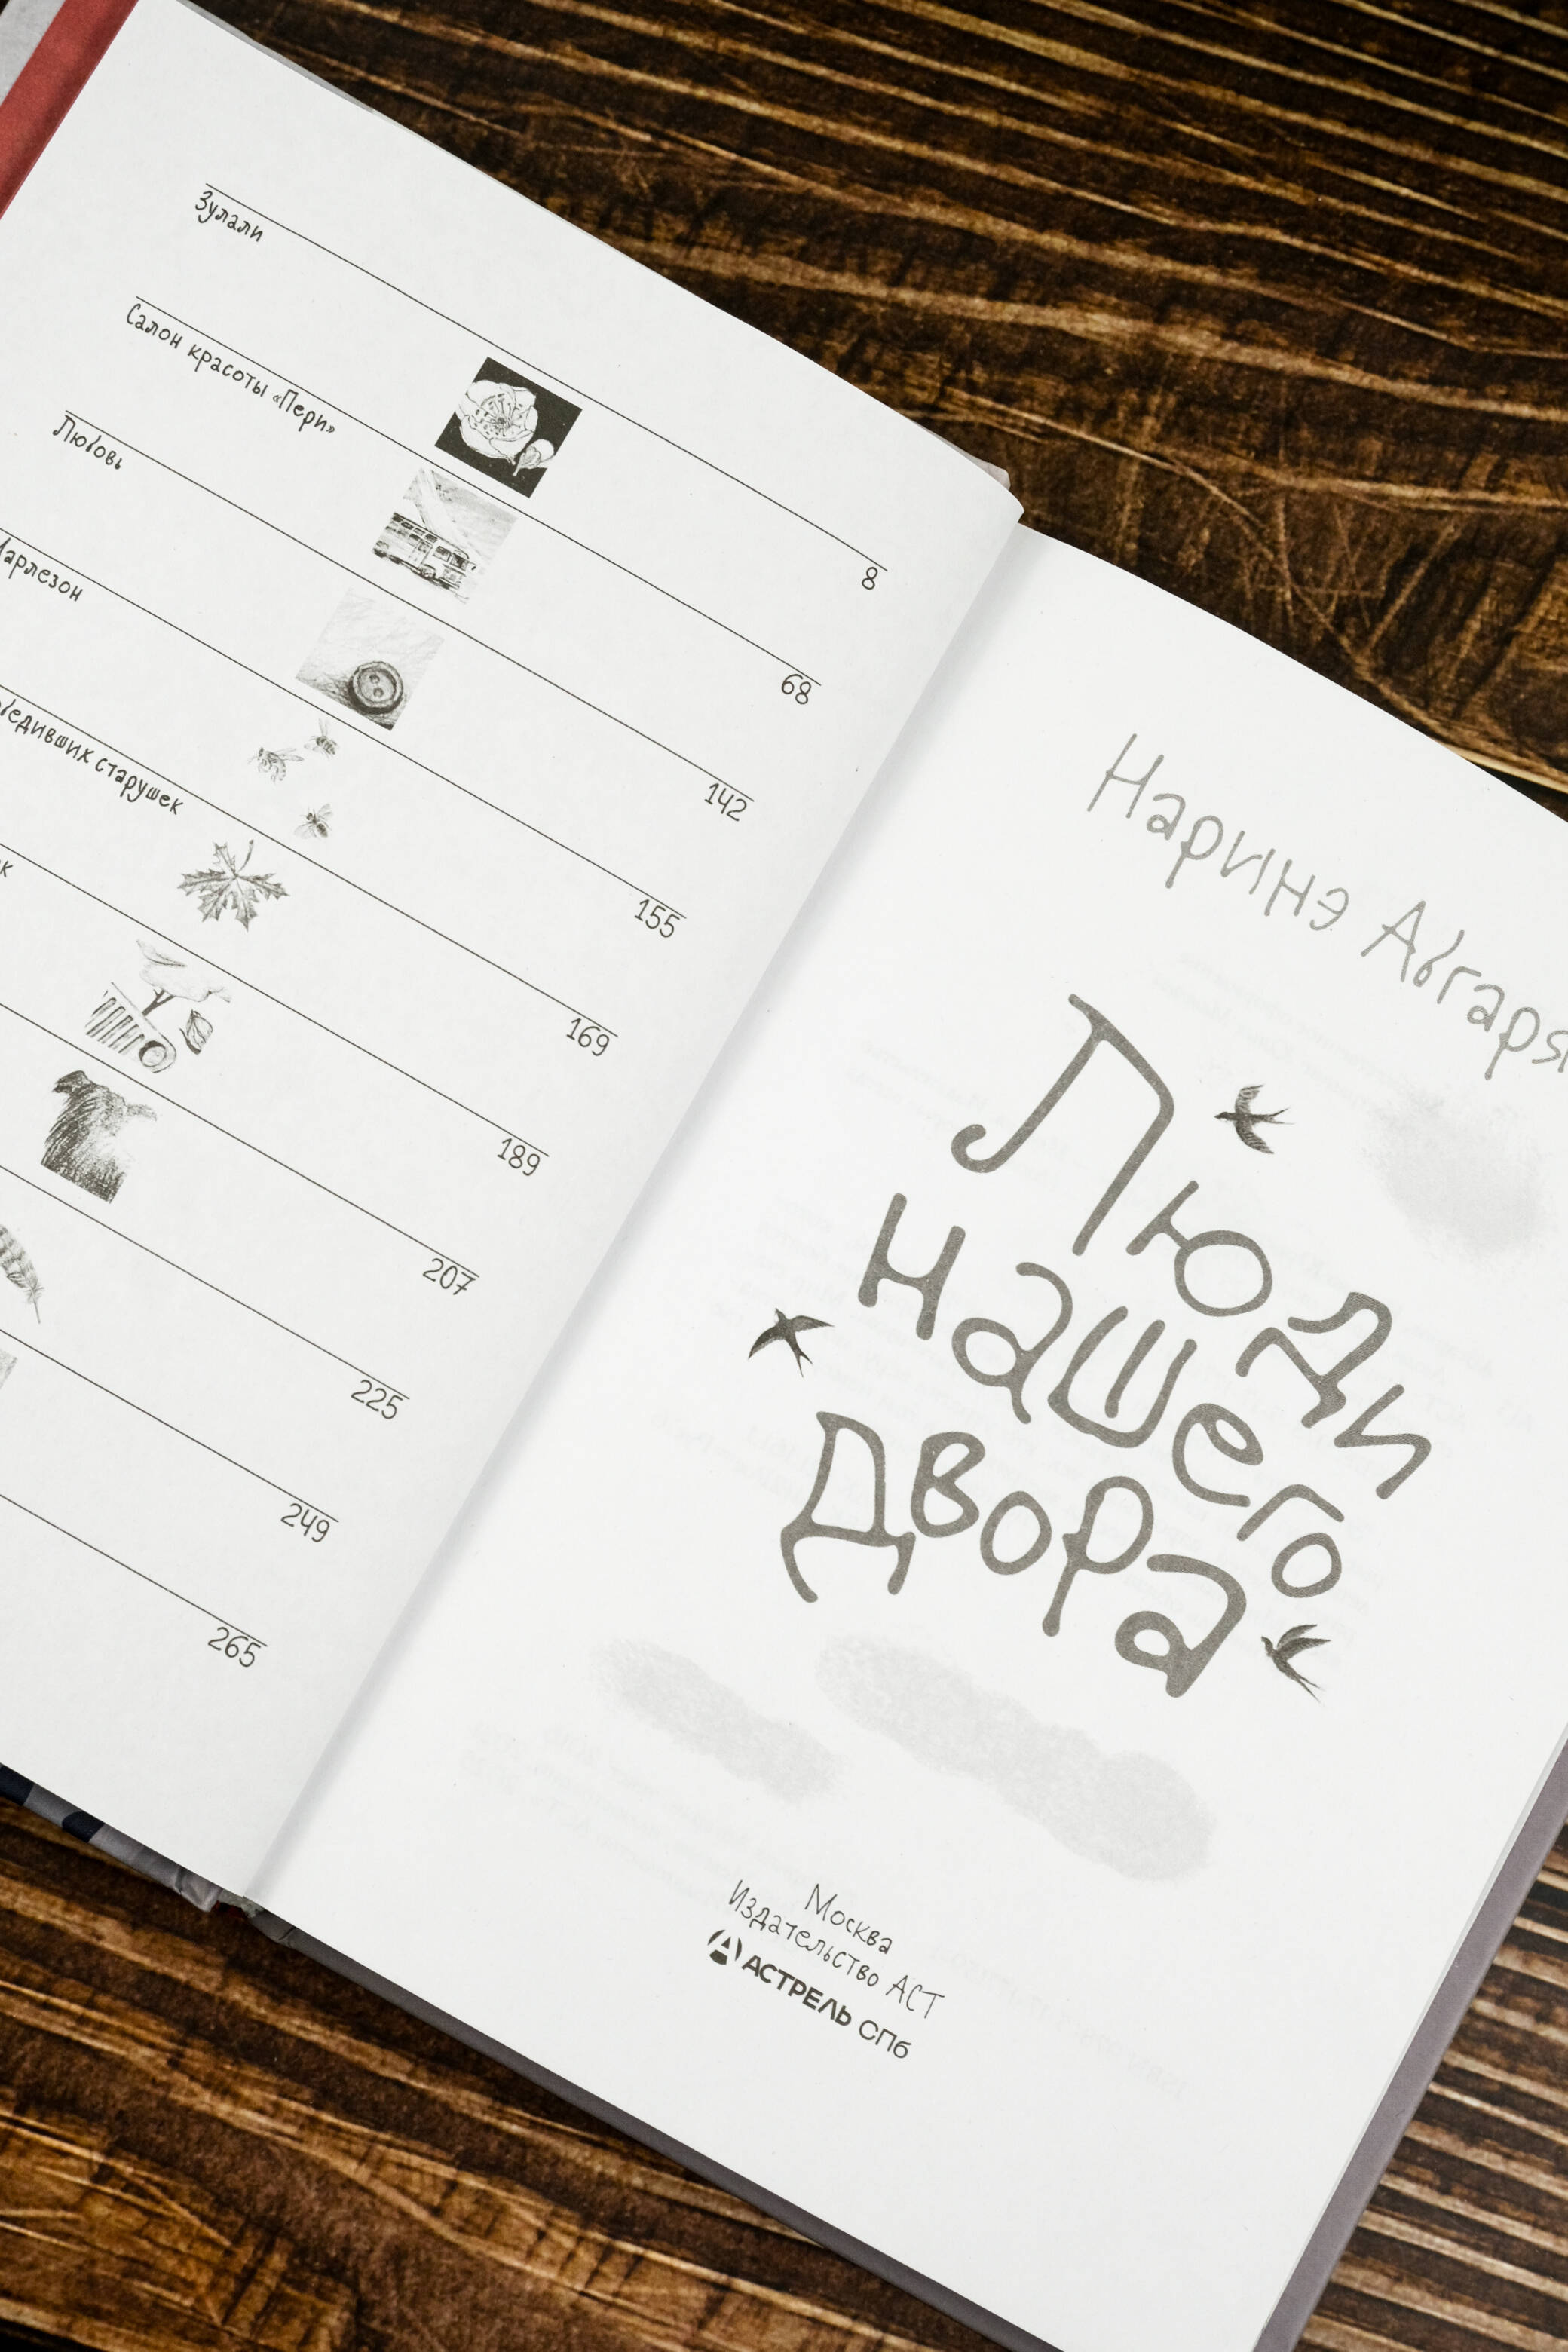 Зулали
8
Салон красоты «Пери»
68
Любовь
142
Марлезон
155
старушек
169
189
207
225
249
265
Наринэ Абгаря
Люди
нашего
двора
Москва
Издательство АСТ
АСТРЕЛЬ СПб